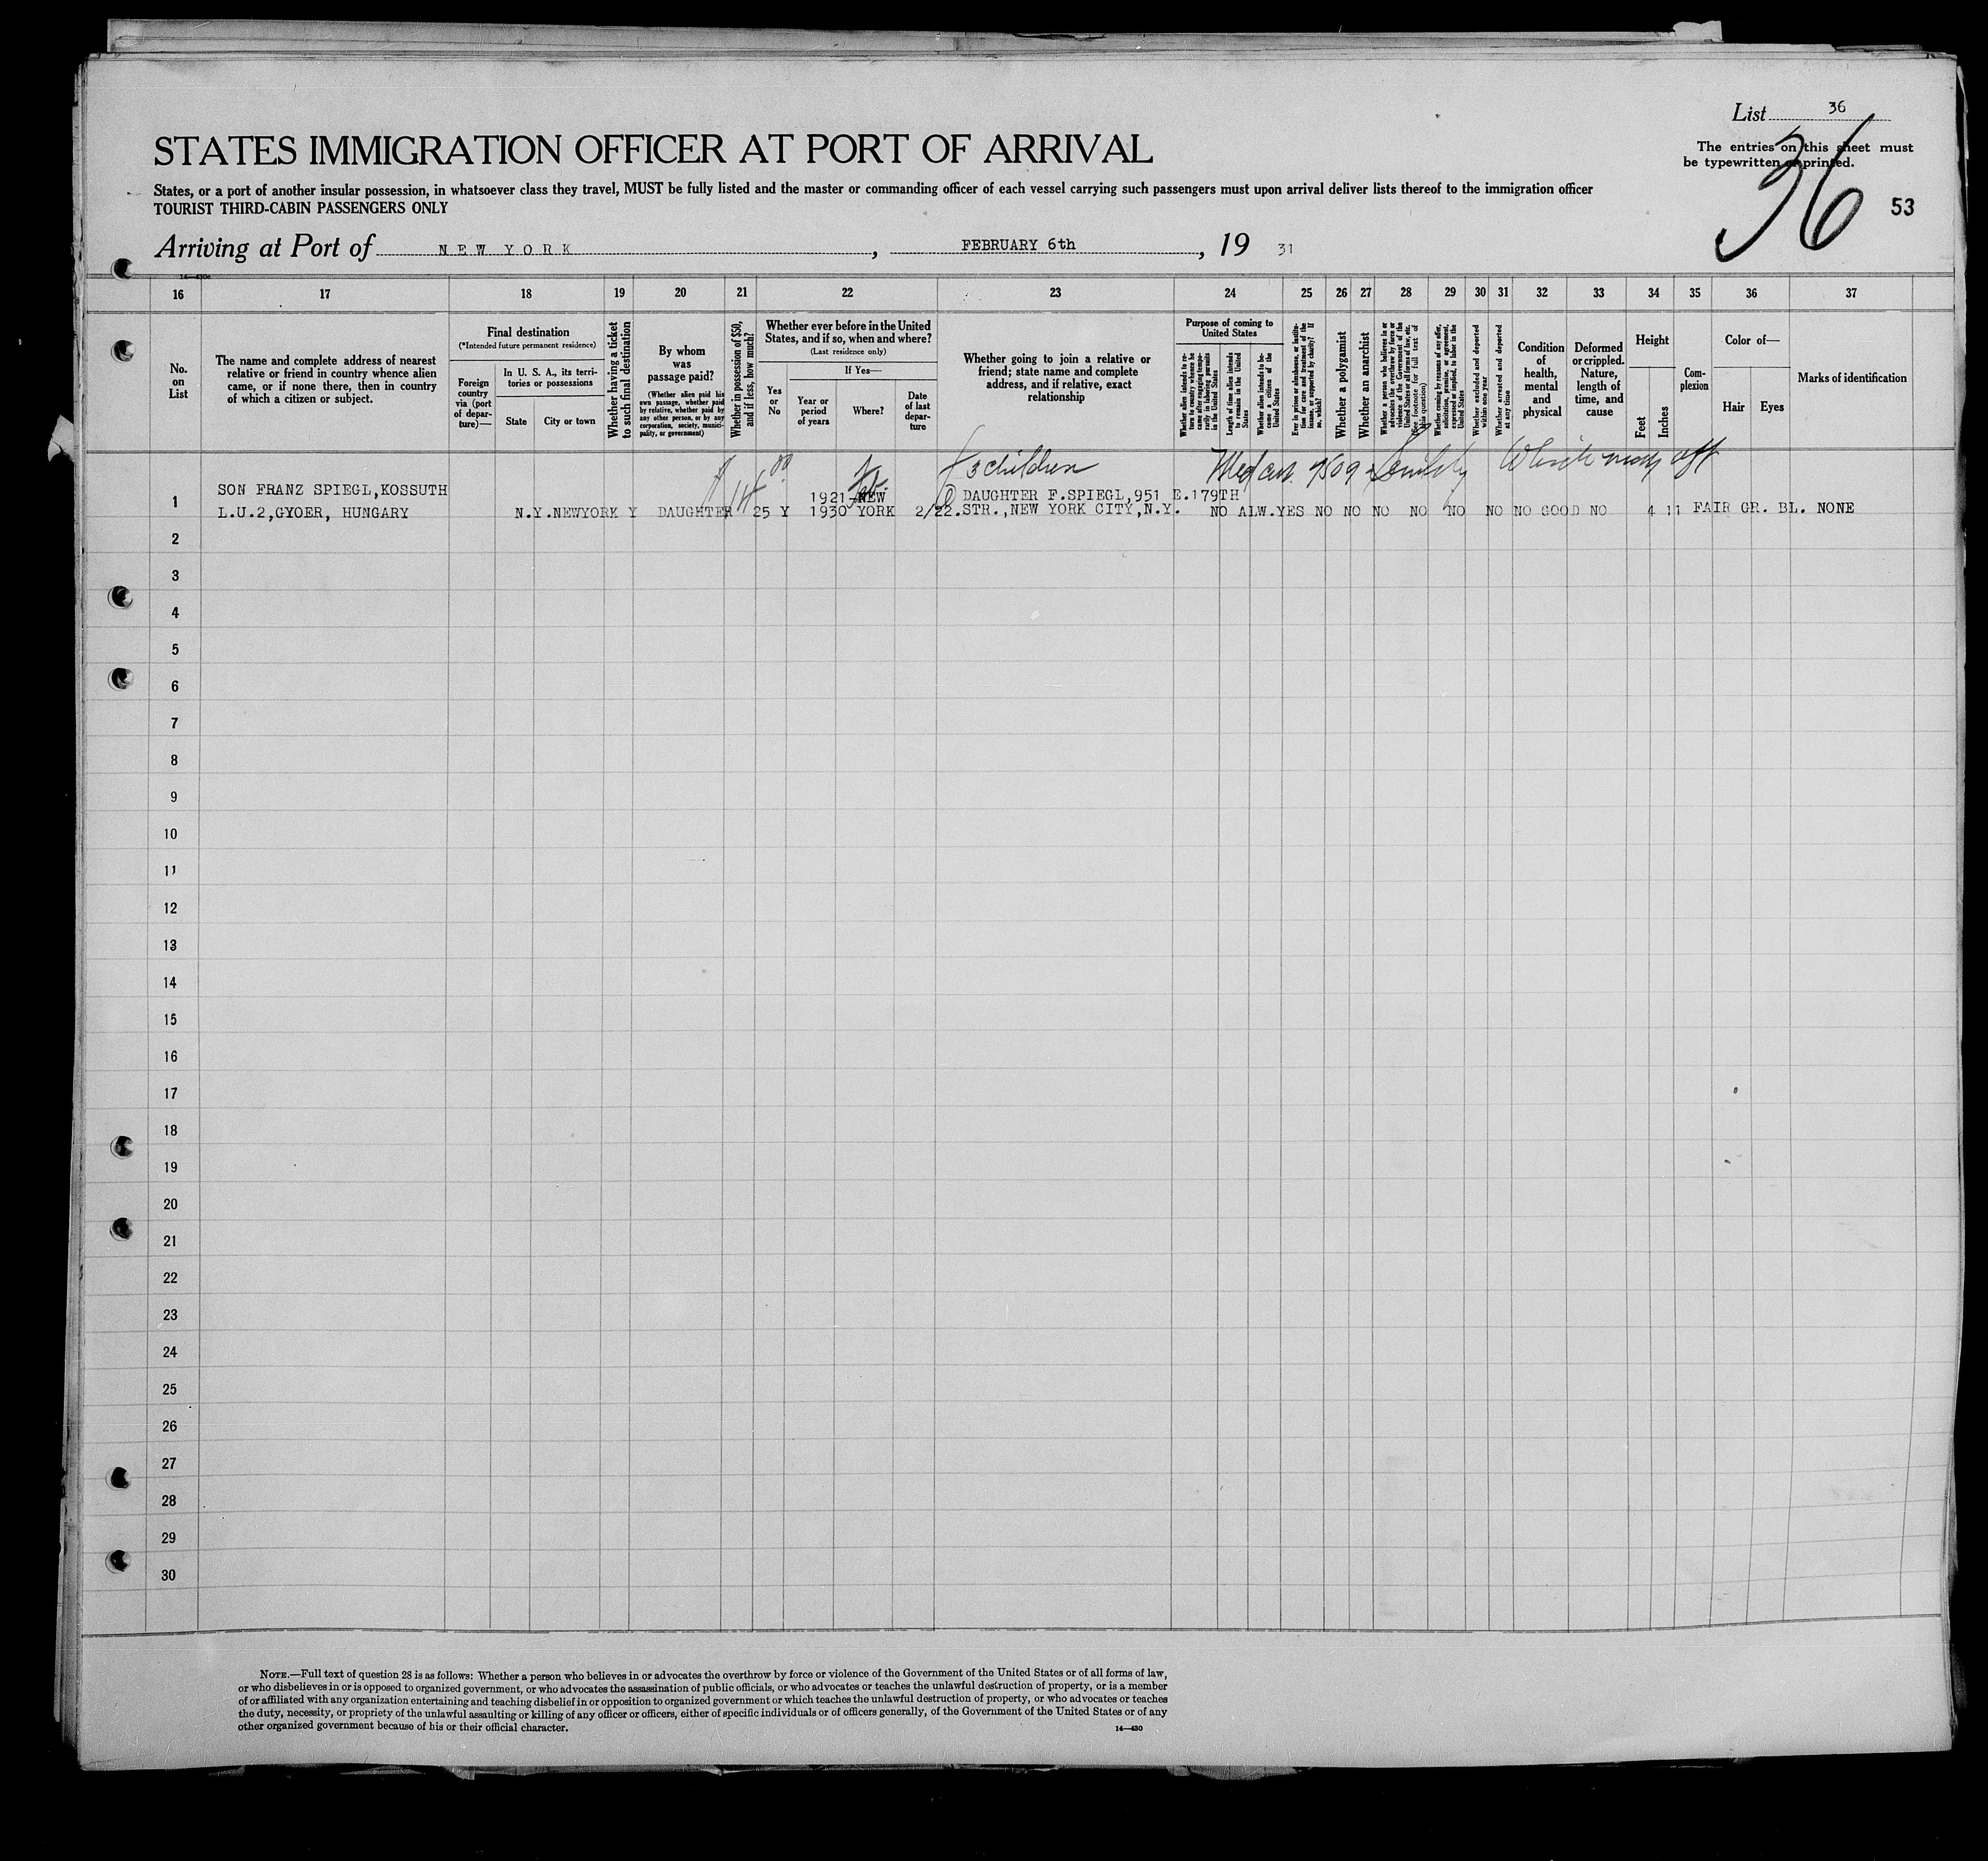 List 36
STATES IMMIGRATION OFFICER AT PORT OF ARRIVAL
The entries on this sheet must
be typewritten or printed.
36
States, or a port of another insular possession, in whatsoever class they travel, MUST be fully listed and the master or commanding officer of each vessel carrying such passengers must upon arrival deliver lists thereof to the immigration officer
TOURIST THIRD-CABIN PASSENGERS ONLY
53
Arriving at Port of NEW YORK, FEBRUARY 6th, 19 31
14—430
16 17 18 19 20 21 22 23 24 25 26 27 28 29 30 31 32 33 34 35 36 37
No.
on
List
The name and complete address of nearest
relative or friend in country whence alien
came, or if none there, then in country
of which a citizen or subject.
Final destination
(*Intended future permanent residence)
Foreign
country
via (port
of depar-
ture)—
In U. S. A., its terri-
tories or possessions
State
City or town
Whether having a ticket
to such final destination
By whom
was
passage paid?
(Whether alien paid his
own passage, whether paid
by relative, whether paid by
any other person, or by any
corporation, society, munici-
pality, or government)
Whether in possession of $50,
and if less, how much?
Whether ever before in the United
States, and if so, when and where?
(Last residence only)
Yes
or
No
If Yes—
Year or
period
of years
Where?
Date
of last
depar-
ture
Whether going to join a relative or
friend; state name and complete
address, and if relative, exact
relationship
Purpose of coming to
United States
Whether alien intends to re-
turn to country whence he
came after engaging tempo-
rarily in laboring pursuits
in the United States
Length of time alien intends
to remain in the United
States
Whether alien intends to be-
come a citizen of the
United States
Ever in prison or almshouse, or institu-
tion for care and treatment of the
insane, or supported by charity? If
so, which?
Whether a polygamist
Whether an anarchist
Whether a person who believes in or
advocates the overthrow by force or
violence of the Government of the
United States or all forms of law, etc.
(See footnote for full text of
this question)
Whether coming by reasons of any offer,
solicitation, promise, or agreement,
expressed or implied, to labor in the
United States
Whether excluded and deported
within one year
Whether arrested and deported
at any time
Condition
of
health,
mental
and
physical
Deformed
or crippled.
Nature,
length of
time, and
cause
Height
Feet
Inches
Com-
plexion
Color of—
Hair
Eyes
Marks of identification
3 children
SON FRANZ SPIEGL,KOSSUTH 1921-NEW DAUGHTER F.SPIEGL,951 E.179TH
1 L.U.2,GYOER, HUNGARY N.Y.NEWYORK Y DAUGHTER 25 Y 1930 YORK 2/22.STR.,NEW YORK CITY,N.Y. NO ALW.YES NO NO NO NO NO NO NO GOOD NO 4 11 FAIR GR. BL. NONE
2
3
4
5
6
7
8
9
10
11
12
13
14
15
16
17
18
19
20
21
22
23
24
25
26
27
28
29
30
NOTE.—Full text of question 28 is as follows: Whether a person who believes in or advocates the overthrow by force or violence of the Government of the United States or of all forms of law,
or who disbelieves in or is opposed to organized government, or who advocates the assassination of public officials, or who advocates or teaches the unlawful destruction of property, or is a member
of or affiliated with any organization entertaining and teaching disbelief in or opposition to organized government or which teaches the unlawful destruction of property, or who advocates or teaches
the duty, necessity, or propriety of the unlawful assaulting or killing of any officer or officers, either of specific individuals or of officers generally, of the Government of the United States or of any
other organized government because of his or their official character.
14—430